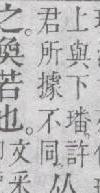 上與下璠許
君所據不同从
之奐若也。文采